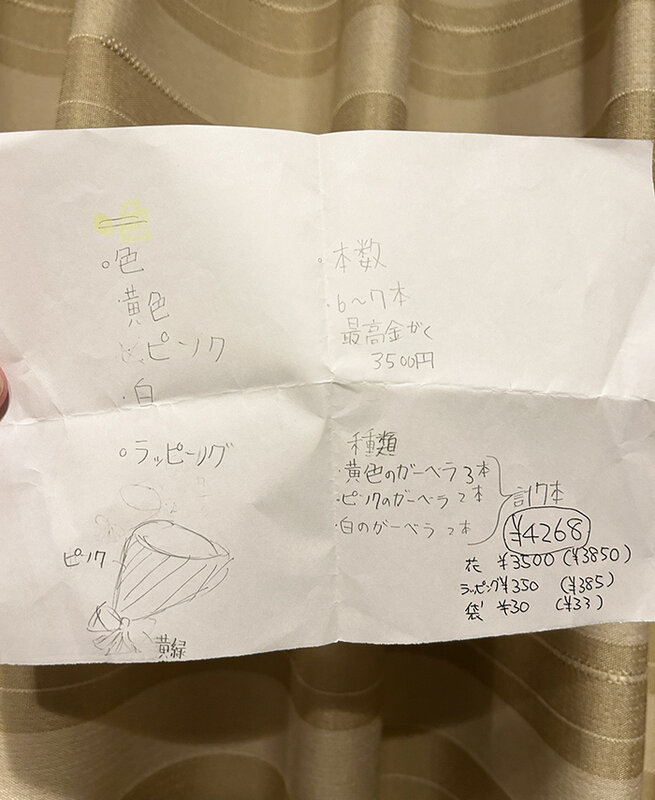 ○色
・黄色
・ピンク
・白
○ラッピング
ピンク
黄緑
・本数
・6〜7本
最高金がく
3500円
種類
・黄色のガーベラ3本
・ピンクのガーベラ2本
・白のガーベラ2本
計7本
¥4268
花 ¥3500(¥3850)
ラッピング¥350 (¥385)
袋 ¥30 (¥33)